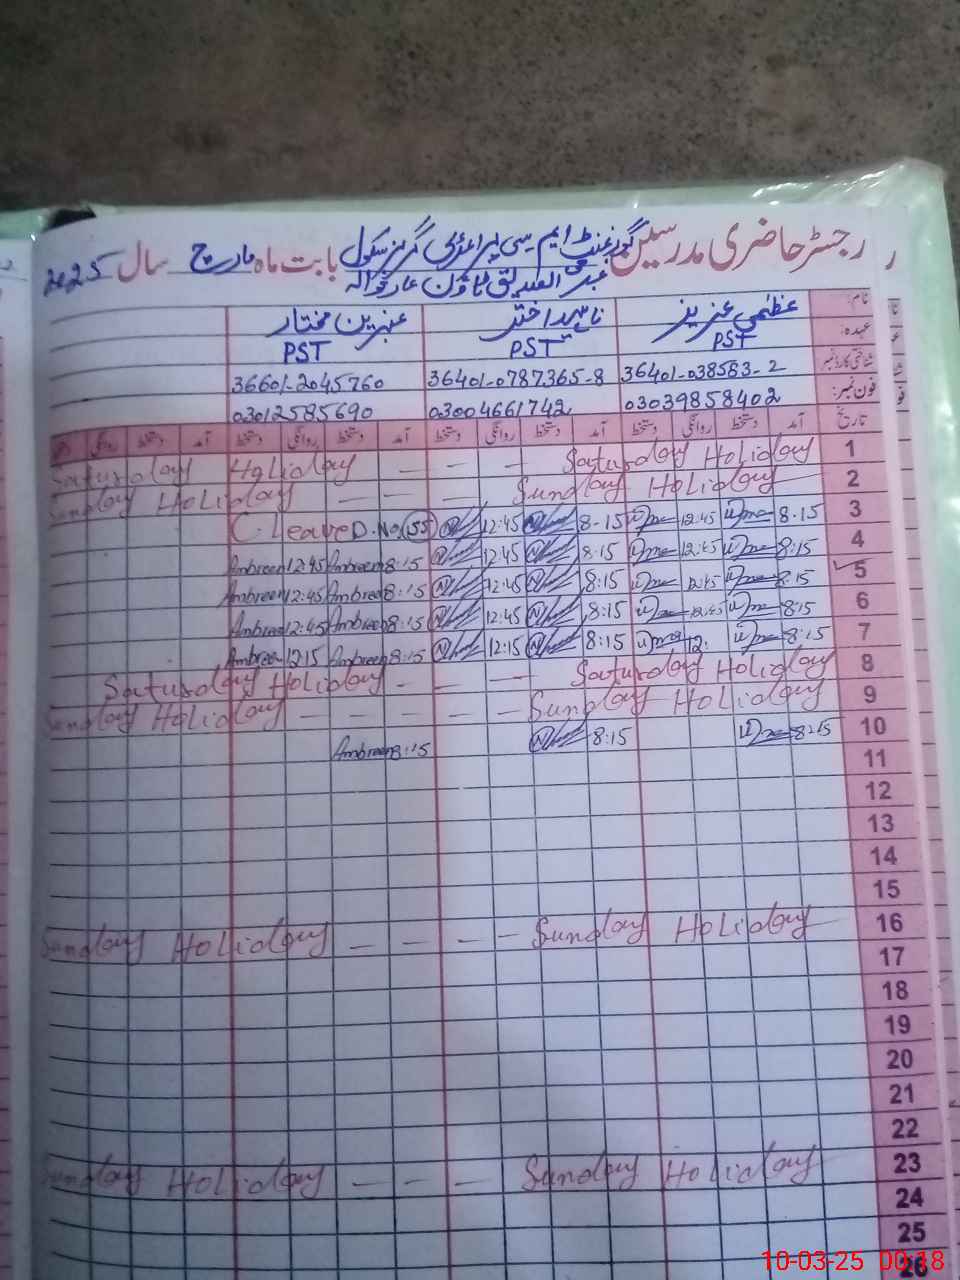 رجسٹر حاضری مدرسین گورنمنٹ ایم سی پرائمری گرلز سکول بابت ماہ مارچ سال 2025
ٹاؤن عارفوالہ
نام: عظمیٰ عزیز ناہید اختر عنبرین مختار
عہدہ: PST PST PST
شناختی کارڈ نمبر 36401-038583-2 36401-0787365-8 36601-2045760
فون نمبر: 03039858402 03004661742 03012585690
تاریخ آمد دستخط روانگی دستخط آمد دستخط روانگی دستخط آمد دستخط روانگی دستخط آمد دستخط روانگی
1 Saturday Holiday — — — Saturday Holiday
2 Sunday Holiday — — — Sunday Holiday
3 8-15 12:45 8-15 12:45 C. Leave D. No. 155
4 8:15 12:45 8:15 12:45 8:15 Ambreen 12:45 Ambreen
5 8:15 12:45 8:15 12:45 8:15 Ambreen 12:45 Ambreen
6 8:15 12:45 8:15 12:45 8:15 Ambreen 12:45 Ambreen
7 8:15 12: 8:15 12:15 8:15 Ambreen 12:15 Ambreen
8 Saturday Holiday — — — Saturday Holiday
9 Sunday Holiday — — — — — Sunday Holiday
10 8:15 8:15 8:15 Ambreen
11
12
13
14
15
16 Sunday Holiday — — — — Sunday Holiday
17
18
19
20
21
22
23 Sunday Holiday — — — Sunday Holiday
24
25
26
10-03-25 00:18